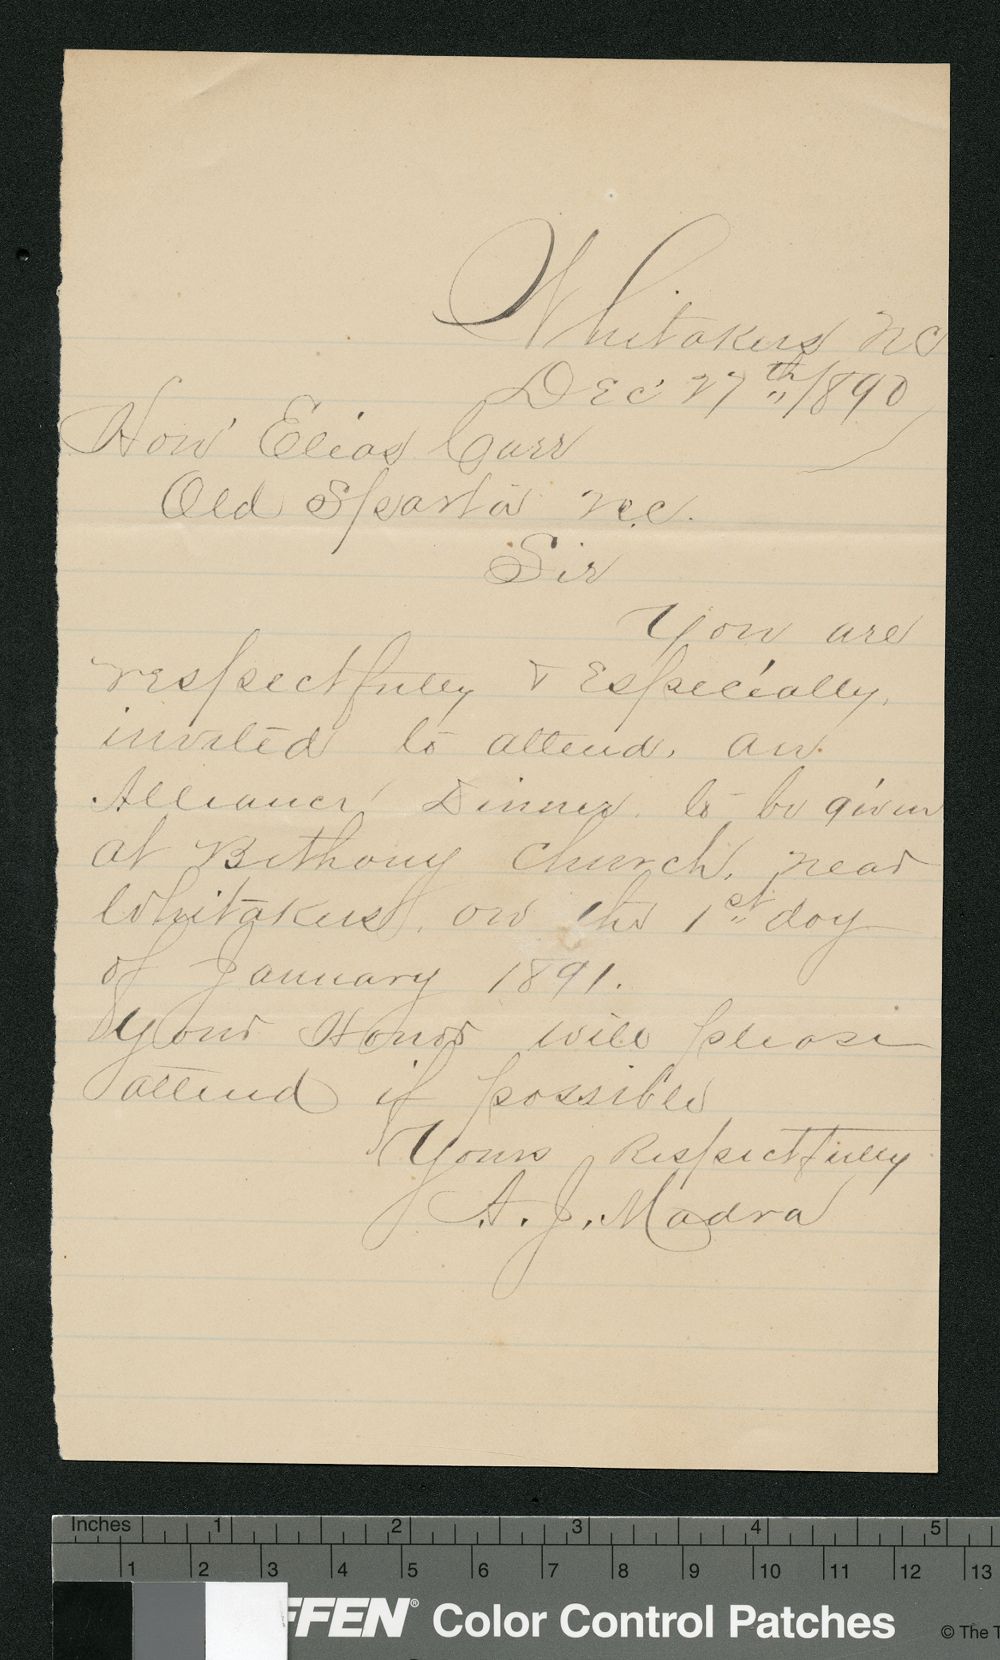 Whitakers NC
Dec 27th/1890
Hon Elias Carr
Old Sparta N.C.
Sir
You are
respectfully & Especially,
invited to attend, an
Alliance Dinner, to be given
at Bethany Church, near
Whitakers, on the 1st day
of January 1891.
Your Honor will please
attend if possible
Yours Respectfully
A. J. Madra
Inches 1 2 3 4 5
1 2 3 4 5 6 7 8 9 10 11 12 13
FFEN® Color Control Patches © The T